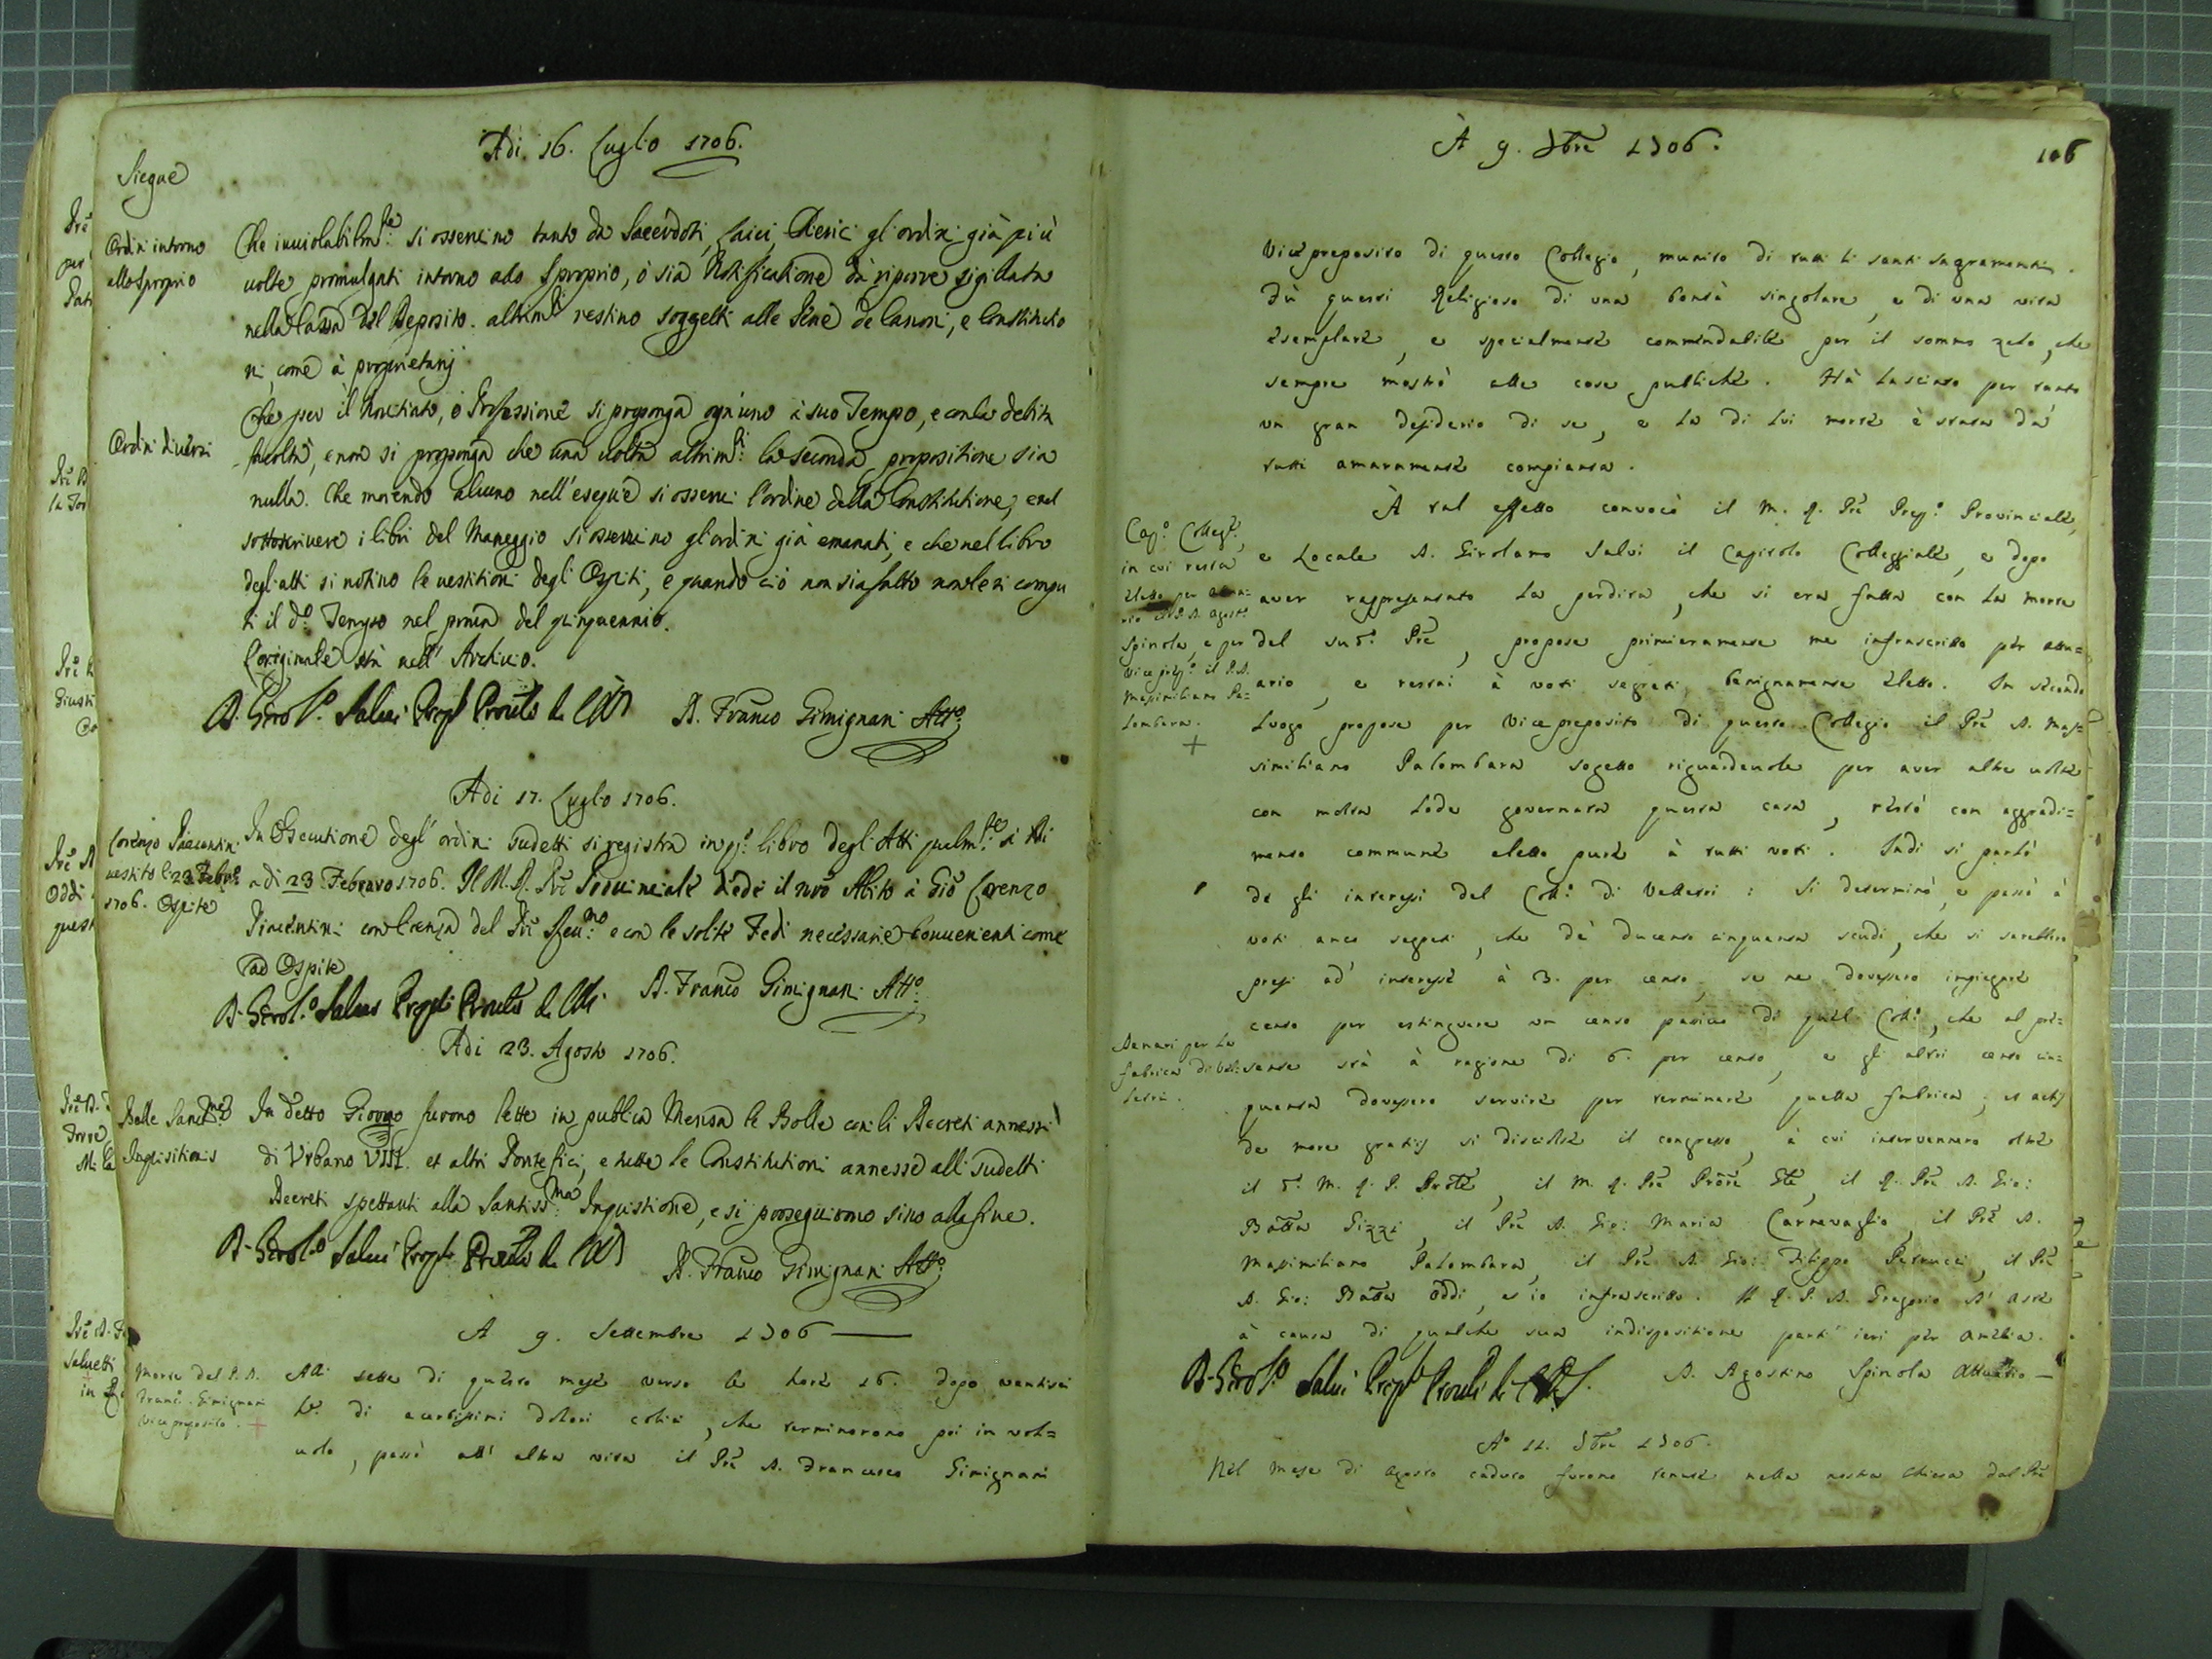 Adi. 16. Luglio 1706.
Siegue
Ordini intorno
allo sproprio
Che inuiolabilm.te si osseruino tanto da Sacerdoti, Laici, Clerici gl'ordini già più
uolte promulgati intorno allo sproprio, ò sia Notificatione da riporre sigillata
nella Cassa del Deposito. altrim.ti restino soggetti alle Pene de Canoni, e Constitutio
ni, come à proprietarij.
Ordini diuersi
Che per il Nouitiato, ò Professione si proponga ogn'uno à suo Tempo, e con la debita
facoltà, e non si proponga che una uolta altrim.ti la seconda propositione sia
nulla. Che morendo alcuno nell'esequie si osserui l'ordine della Constitutione, e nel
sottoscriuere i libri del Maneggio si osseruino gl'ordini già emanati, e che nel libro
degli atti si notino le uestitioni degli Ospiti, e quando ciò non sia fatto non le si compu
ti il d.o Tempo nel del quinquennio.
L'originale stà nell'Archiuio.
D. Girol.o Salui D. Fran.co Gimignani Att.o
Adi 17. Luglio 1706.
Lorenzo Piacentini
uestito li 23 Febr.o
1706. Ospite
In Esecutione degl'ordini sudetti si registra in q.o libro degli Atti qualm.te à di
adi 23 Febraro 1706. Il M. R. Prē Prouinciale diede il nrō Abito à Giō Lorenzo
Piacentini con licenza del Prē e con le solite Fedi necessarie conuenienti come
ad Ospite
D. Girol.o Salui D. Fran.co Gimignani Att.o
Adi 23. Agosto 1706.
Bolle
Inquisitionis
In detto Giorno furono lette in publica Mensa le Bolle con li Decreti annessi
di Vrbano VIII. et altri Pontefici, e tutte le Constitutioni annesse alli sudetti
Decreti spettanti alla Santiss.ma Inquisitione, e si proseguirono sino alla fine.
D. Girol.o Salui D. Fran.co Gimignani Att.o
A 9. Settembre 1706
Morte del P. D.
Franc.o Gimignani
Vicepreposito. +
Alli sette di questo mese verso le hore 16. dopo ventisei
h.e di acerbissimi dolori colici, che terminorono poi in vol=
uolo, passò all'altra vita il Prē D. Francesco Gimignani
À 9. 7bre 1706.
106
Vicepreposito di questo Collegio, munito di tutti li santi sagramenti.
Fù questi Religioso di una bontà singolare, e di una vita
esemplare, e specialmente commendabile per il sommo zelo, che
sempre mostrò alle cose publiche. Hà lasciato per tanto
un gran desiderio di se, e la di lui morte è stata da
tutti amaramente compianta.
Cap.o Colleg.e,
in cui resta
eletto per attua=
rio il P. D. Agost.o
Spinola, e per
Viceprep.o il P. D.
Massimiliano Pa=
lombara.
+
À tal effetto convocò il M. R. Prē Prep.o Provinciale,
e Locale D. Girolamo Salvi il Capitolo Colleggiale, e dopo
aver rappresentato la perdita, che si era fatta con la morte
del sud.o Prē, propose primieramente me infrascritto per attu=
ario, e restai à voti segreti benignamente eletto. In secondo
luogo propose per Vicepreposito di questo Collegio il Prē D. Mas=
similiano Palombara sogetto riguardevole per aver altre uolte
con molta lode governata questa casa, restò con aggradi=
mento commune eletto pure à tutti voti. Indi si parlò
de gli interessi del Coll.o di Velletri: si determinò, e passò à
voti anco segreti, che de ducento cinquanta scudi, che si sarebbero
presi ad interesse à 3. per cento, se ne dovessero impiegare
cento per estinguere un censo passivo di quel Coll.o, che al pre=
Denari per la
fabrica di Vel=
letri.
sente stà à ragione di 6. per cento, e gli altri cento cin=
quanta dovessero servire per terminare quella fabrica; et actis
de more gratijs si disciolse il congresso, à cui intervennero oltre
il d.o M. R. P. Prōle, il M. R. Prē, il R. Prē D. Gio:
Batta Pizzi, il Prē D. Gio: Maria Carnevaglio, il Prē D.
Massimiliano Palombara, il Prē D. Gio: Filippo Petrucci, il Prē
D. Gio: Batta Oddi, et io infrascritto. Il R. P. D. Gregorio D'Aste
à causa di qualche sua indispositione partì ieri per Amelia.
D. Girol.o Salui D. Agostino Spinola Attuario
A 11. 7bre 1706.
Nel mese di Agosto caduto furono tenute nella nostra Chiesa dal Prē